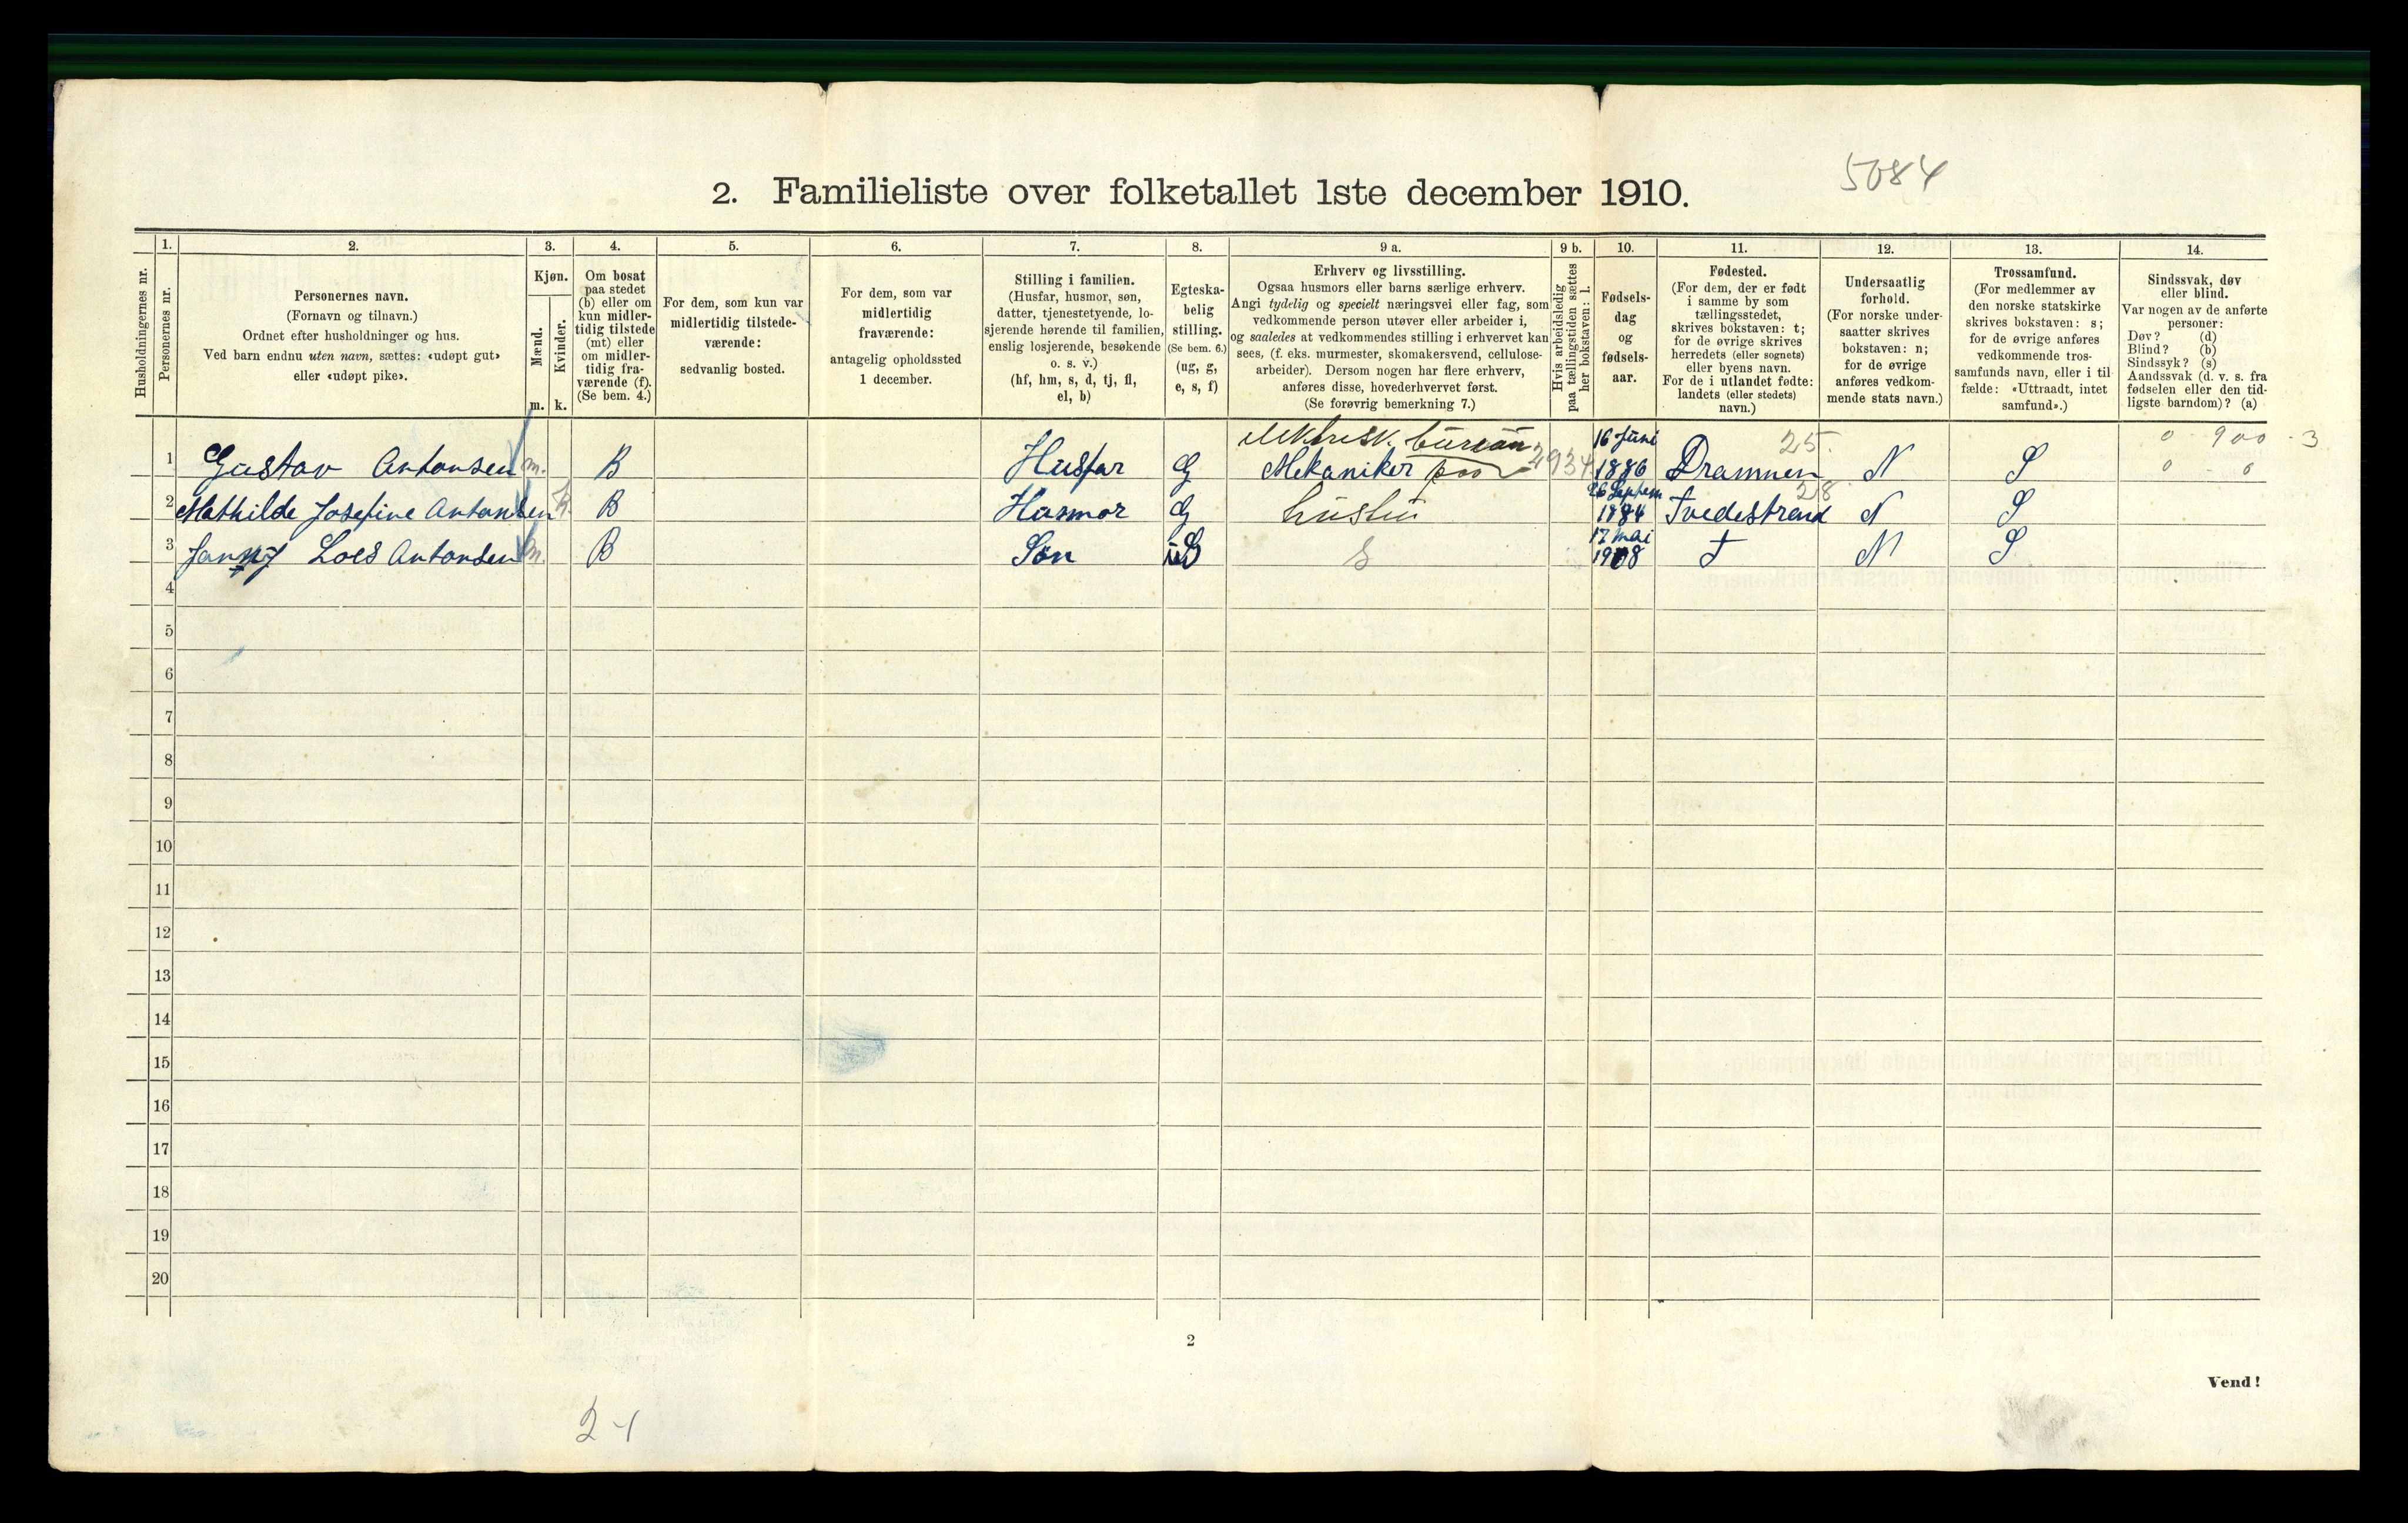 5084
2. Familieliste over folketallet 1ste december 1910.
1. 2. 3. 4. 5. 6. 7. 8. 9 a. 9 b. 10. 11. 12. 13. 14.
Husholdningernes nr.
Personernes nr.
Personernes navn.
(Fornavn og tilnavn.)
Ordnet efter husholdninger og hus.
Ved barn endnu uten navn, sættes: «udøpt gut»
eller «udøpt pike».
Kjøn.
Mænd.
Kvinder.
m. k.
Om bosat
paa stedet
(b) eller om
kun midler-
tidig tilstede
(mt) eller
om midler-
tidig fra-
værende (f).
(Se bem. 4.)
For dem, som kun var
midlertidig tilstede-
værende:
sedvanlig bosted.
For dem, som var
midlertidig
fraværende:
antagelig opholdssted
1 december.
Stilling i familien.
(Husfar, husmor, søn,
datter, tjenestetyende, lo-
sjerende hørende til familien,
enslig losjerende, besøkende
o. s. v.)
(hf, hm, s, d, tj, fl,
el, b)
Egteska-
belig
stilling.
(Se bem. 6.)
(ug, g,
e, s, f)
Erhverv og livsstilling.
Ogsaa husmors eller barns særlige erhverv.
Angi tydelig og specielt næringsvei eller fag, som
vedkommende person utøver eller arbeider i,
og saaledes at vedkommendes stilling i erhvervet kan
sees, (f. eks. murmester, skomakersvend, cellulose-
arbeider). Dersom nogen har flere erhverv,
anføres disse, hovederhvervet først.
(Se forøvrig bemerkning 7.)
Hvis arbeidsledig
paa tællingstiden sættes
her bokstaven: l.
Fødsels-
dag
og
fødsels-
aar.
Fødested.
(For dem, der er født
i samme by som
tællingsstedet,
skrives bokstaven: t;
for de øvrige skrives
herredets (eller sognets)
eller byens navn.
For de i utlandet fødte:
landets (eller stedets)
navn.)
Undersaatlig
forhold.
(For norske under-
saatter skrives
bokstaven: n;
for de øvrige
anføres vedkom-
mende stats navn.)
Trossamfund.
(For medlemmer av
den norske statskirke
skrives bokstaven: s;
for de øvrige anføres
vedkommende tros-
samfunds navn, eller i til
fælde: «Uttraadt, intet
samfund».)
Sindssvak, døv
eller blind.
Var nogen av de anførte
personer:
Døv? (d)
Blind? (b)
Sindssyk? (s)
Aandssvak (d. v. s. fra
fødselen eller den tid-
ligste barndom)? (a)
elektrisk. bureau 16 Juni 25. 0 900 - 3
1 Gustav Antonsen m. B Husfar G Mekaniker paa 1886 Drammen N S 0 - 0
26 Septem 28
2 Mathilde Josefine Antonsen k. B Husmor G hustru 1884 Tvedestrand N S
17 Mai
3 Antonsen m. B Søn S 1908 T N S
4
5
6
7
8
9
10
11
12
13
14
15
16
17
18
19
20
2
Vend!